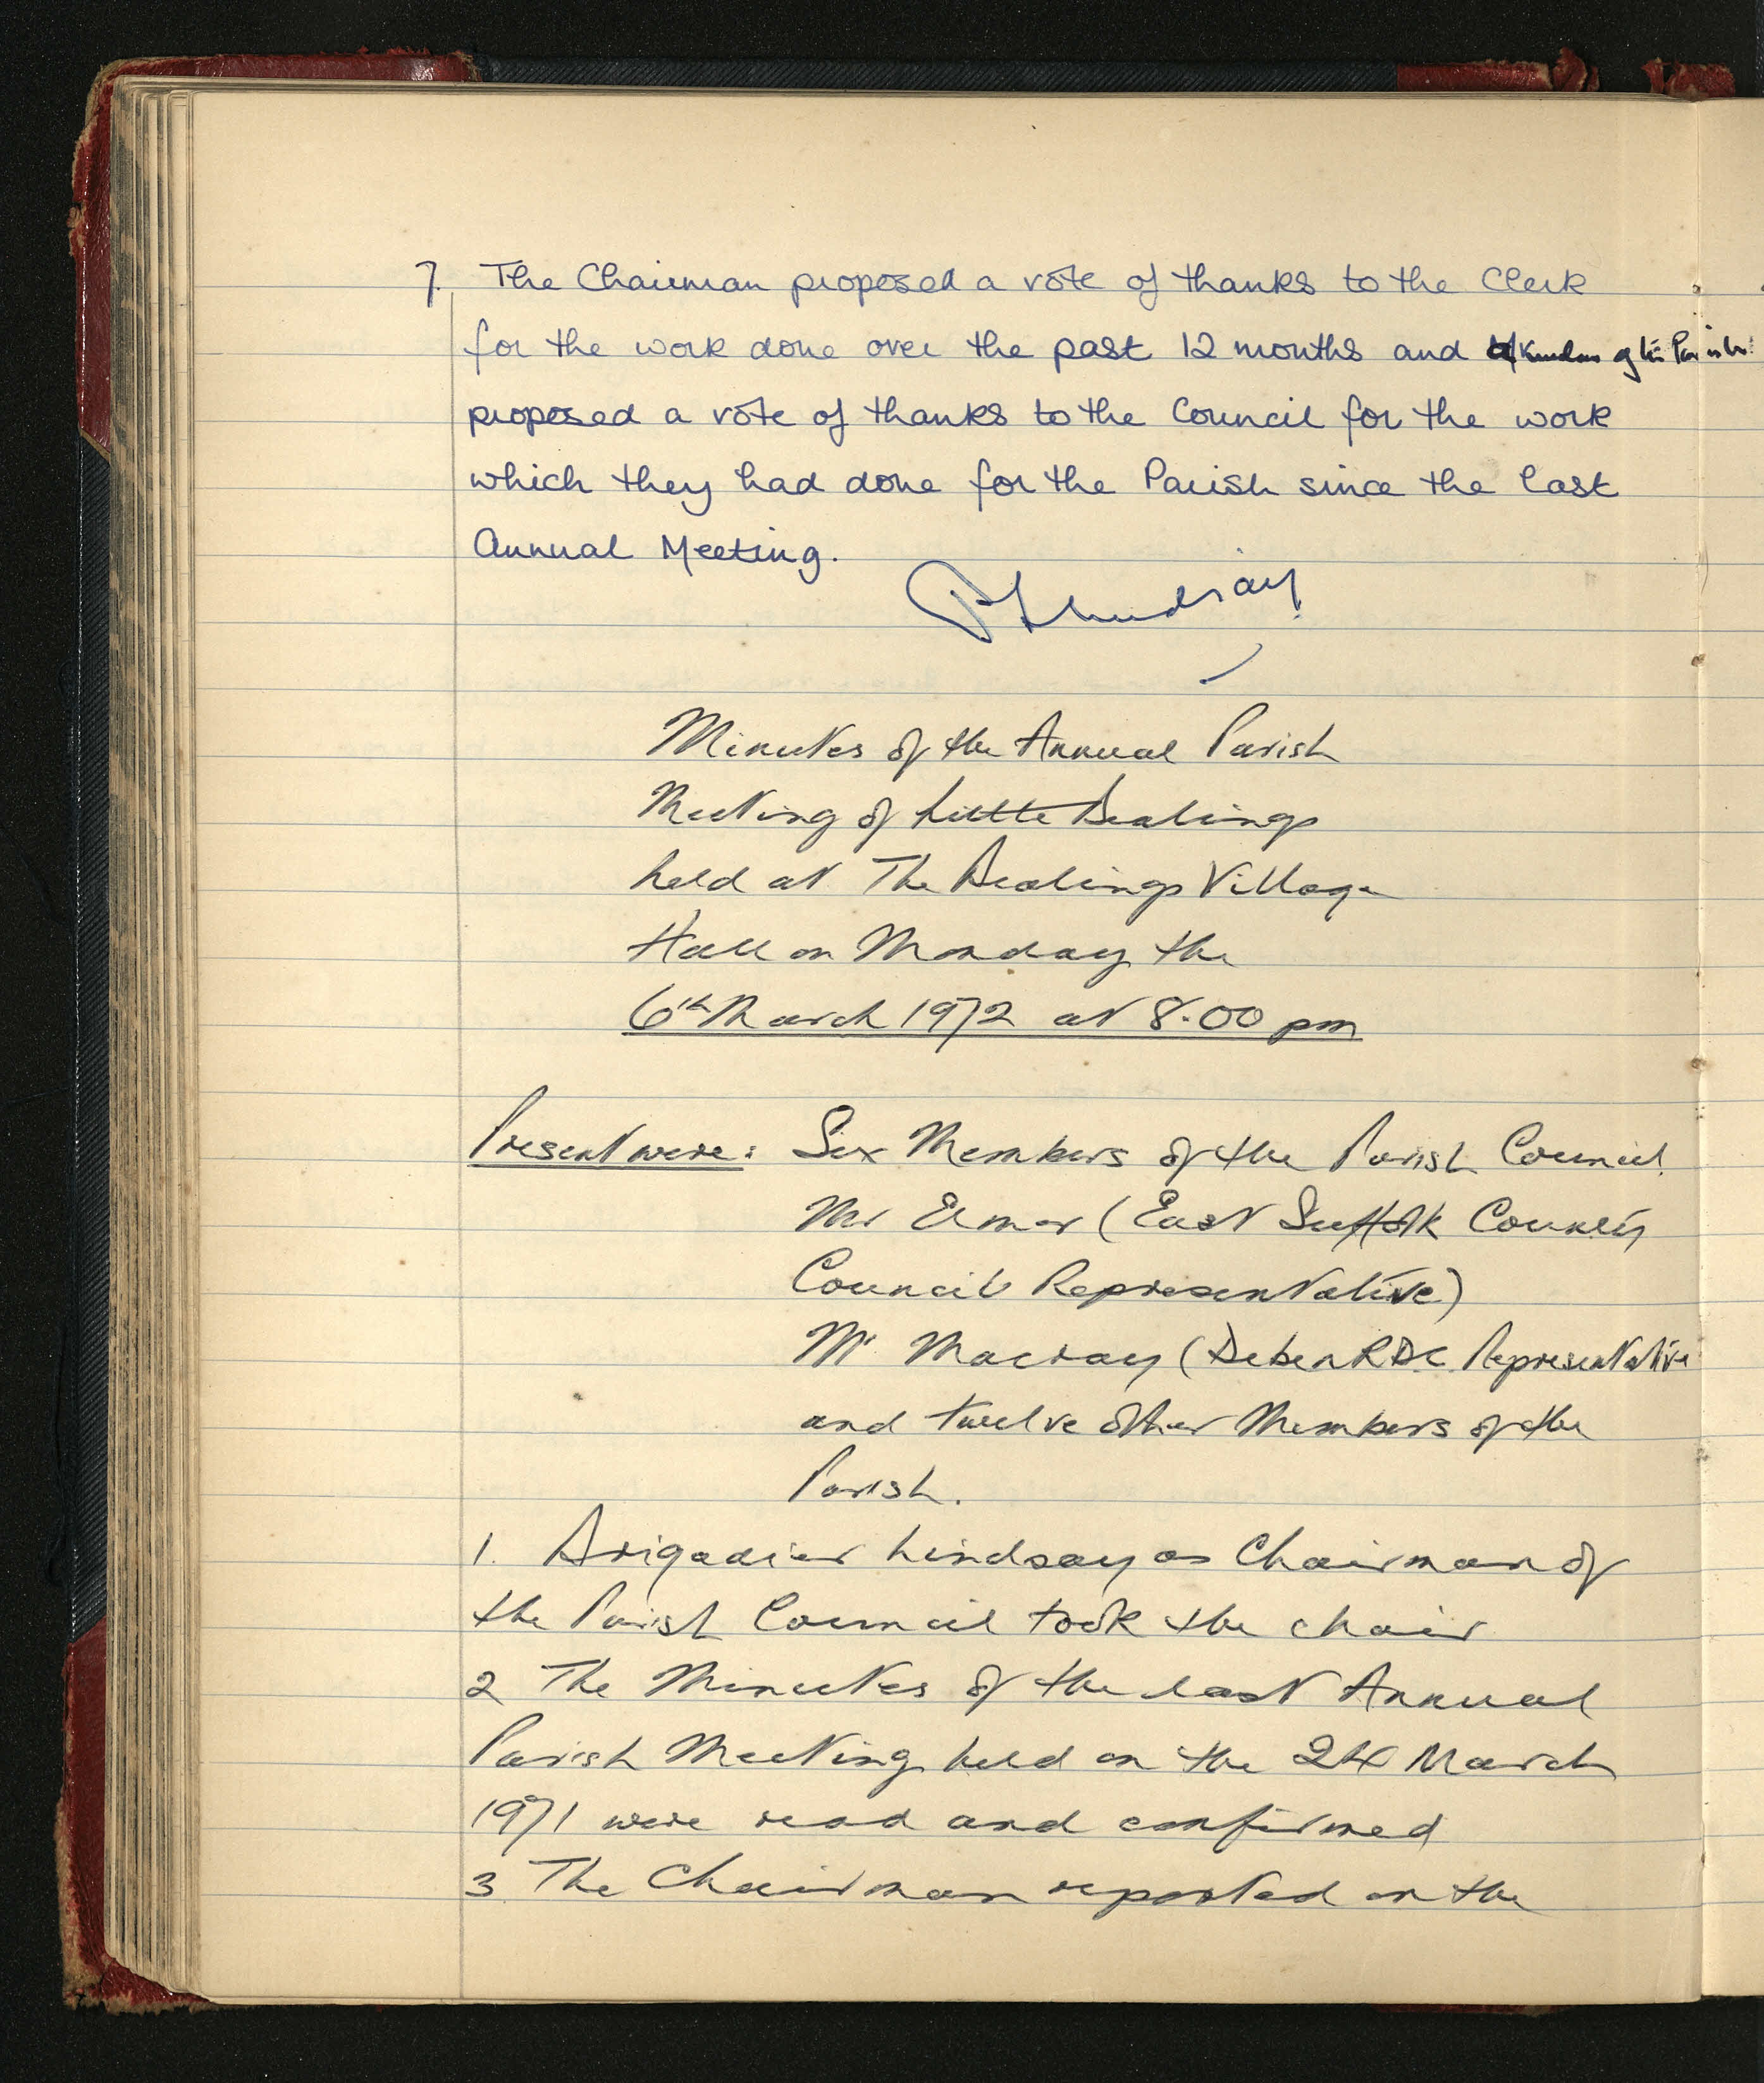 7. The Chairman proposed a vote of thanks to the Clerk
for the work done over the past 12 months and members of the Parish
proposed a vote of thanks to the Council for the work
which they had done for the Parish since the last
Annual Meeting.
Lindsay
Minutes of the Annual Parish
Meeting of Little Bealings
held at The Bealings Village
Hall on Monday the
6th March 1972 at 8.00 pm
Present were: Six Members of the Parish Council
Mr (East Suffolk County
Council Representative)
Mr Macray (Deben RDC Representative
and twelve other Members of the
Parish.
1. Brigadier Lindsay as Chairman of
the Parish Council took the chair
2 The Minutes of the last Annual
Parish Meeting held on the 24 March
1971 were read and confirmed
3 The Chairman reported on the